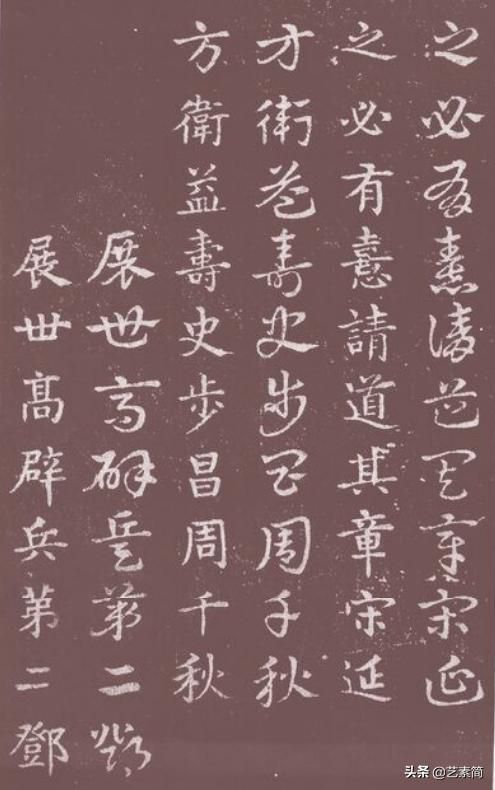 之必有憙請道其章宋延
之必有憙請道其章宋延
方衛益壽史步昌周千秋
方衛益壽史步昌周千秋
展世高辟兵第二鄧
展世高辟兵第二鄧
头条 @艺素简